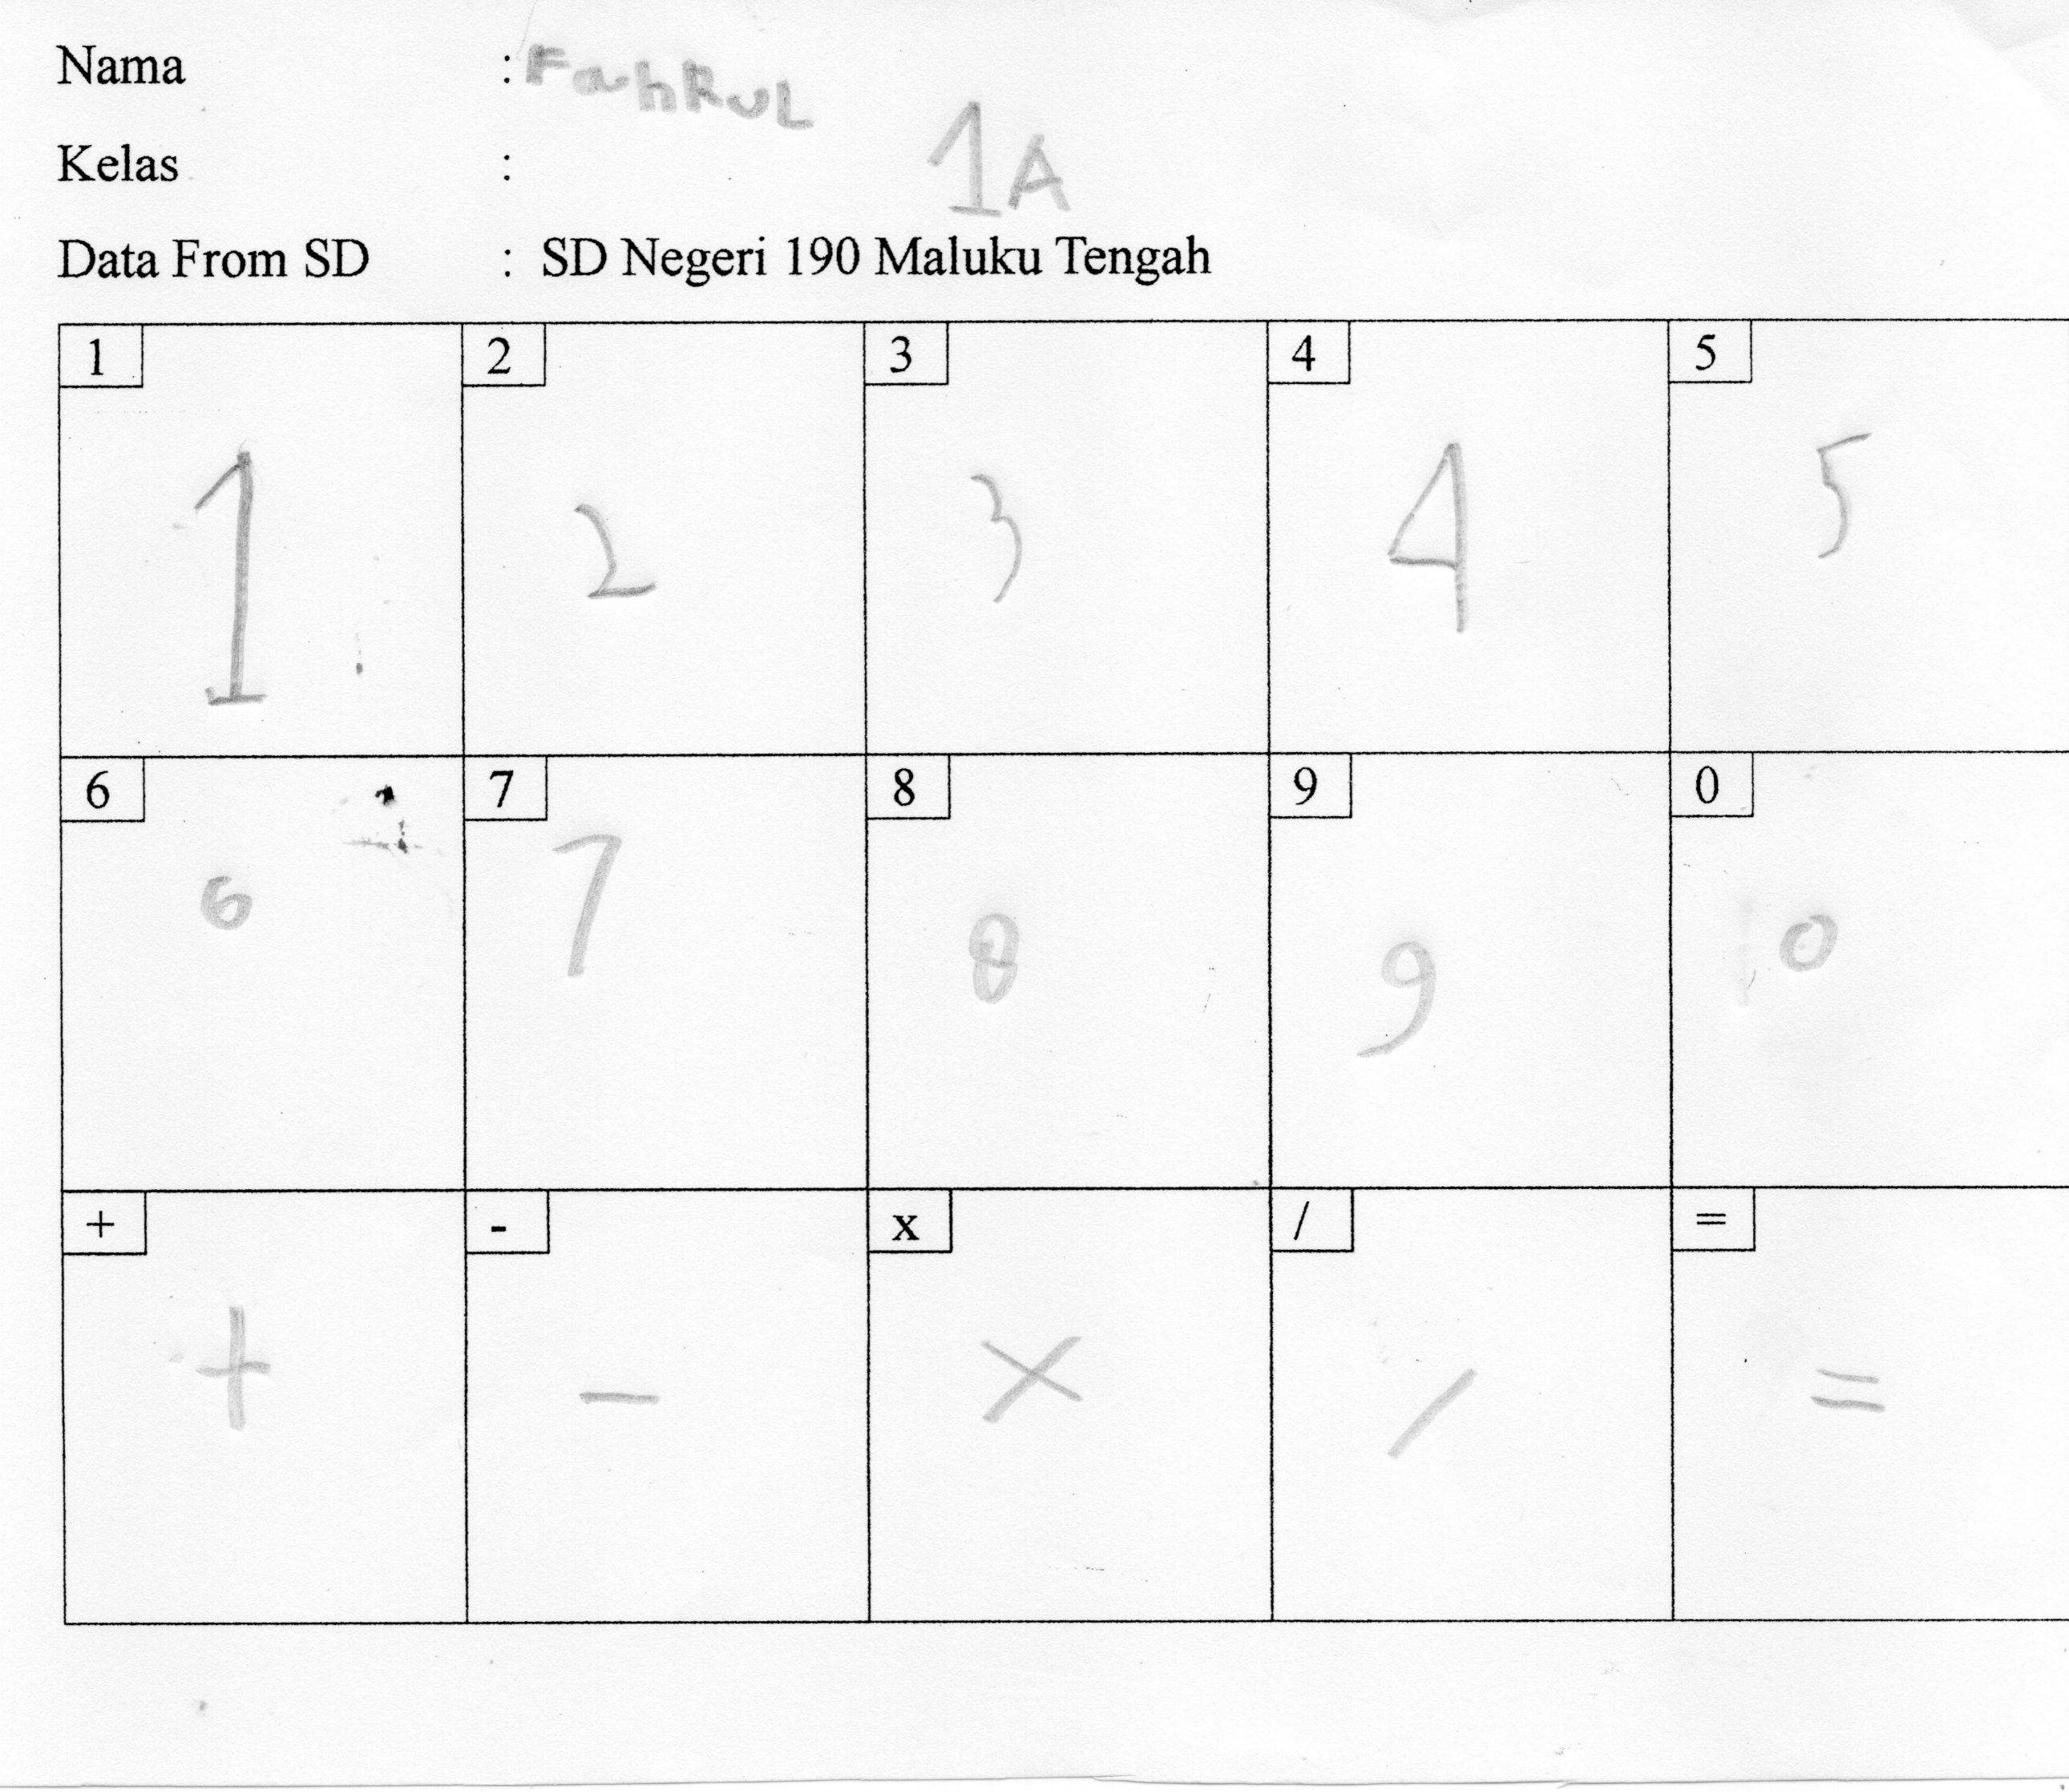 Nama : FahRUL
Kelas : 1A
Data From SD : SD Negeri 190 Maluku Tengah
1 2 3 4 5
1 2 3 4 5
6 7 8 9 0
6 7 8 9 0
+ - x / =
+ - x / =